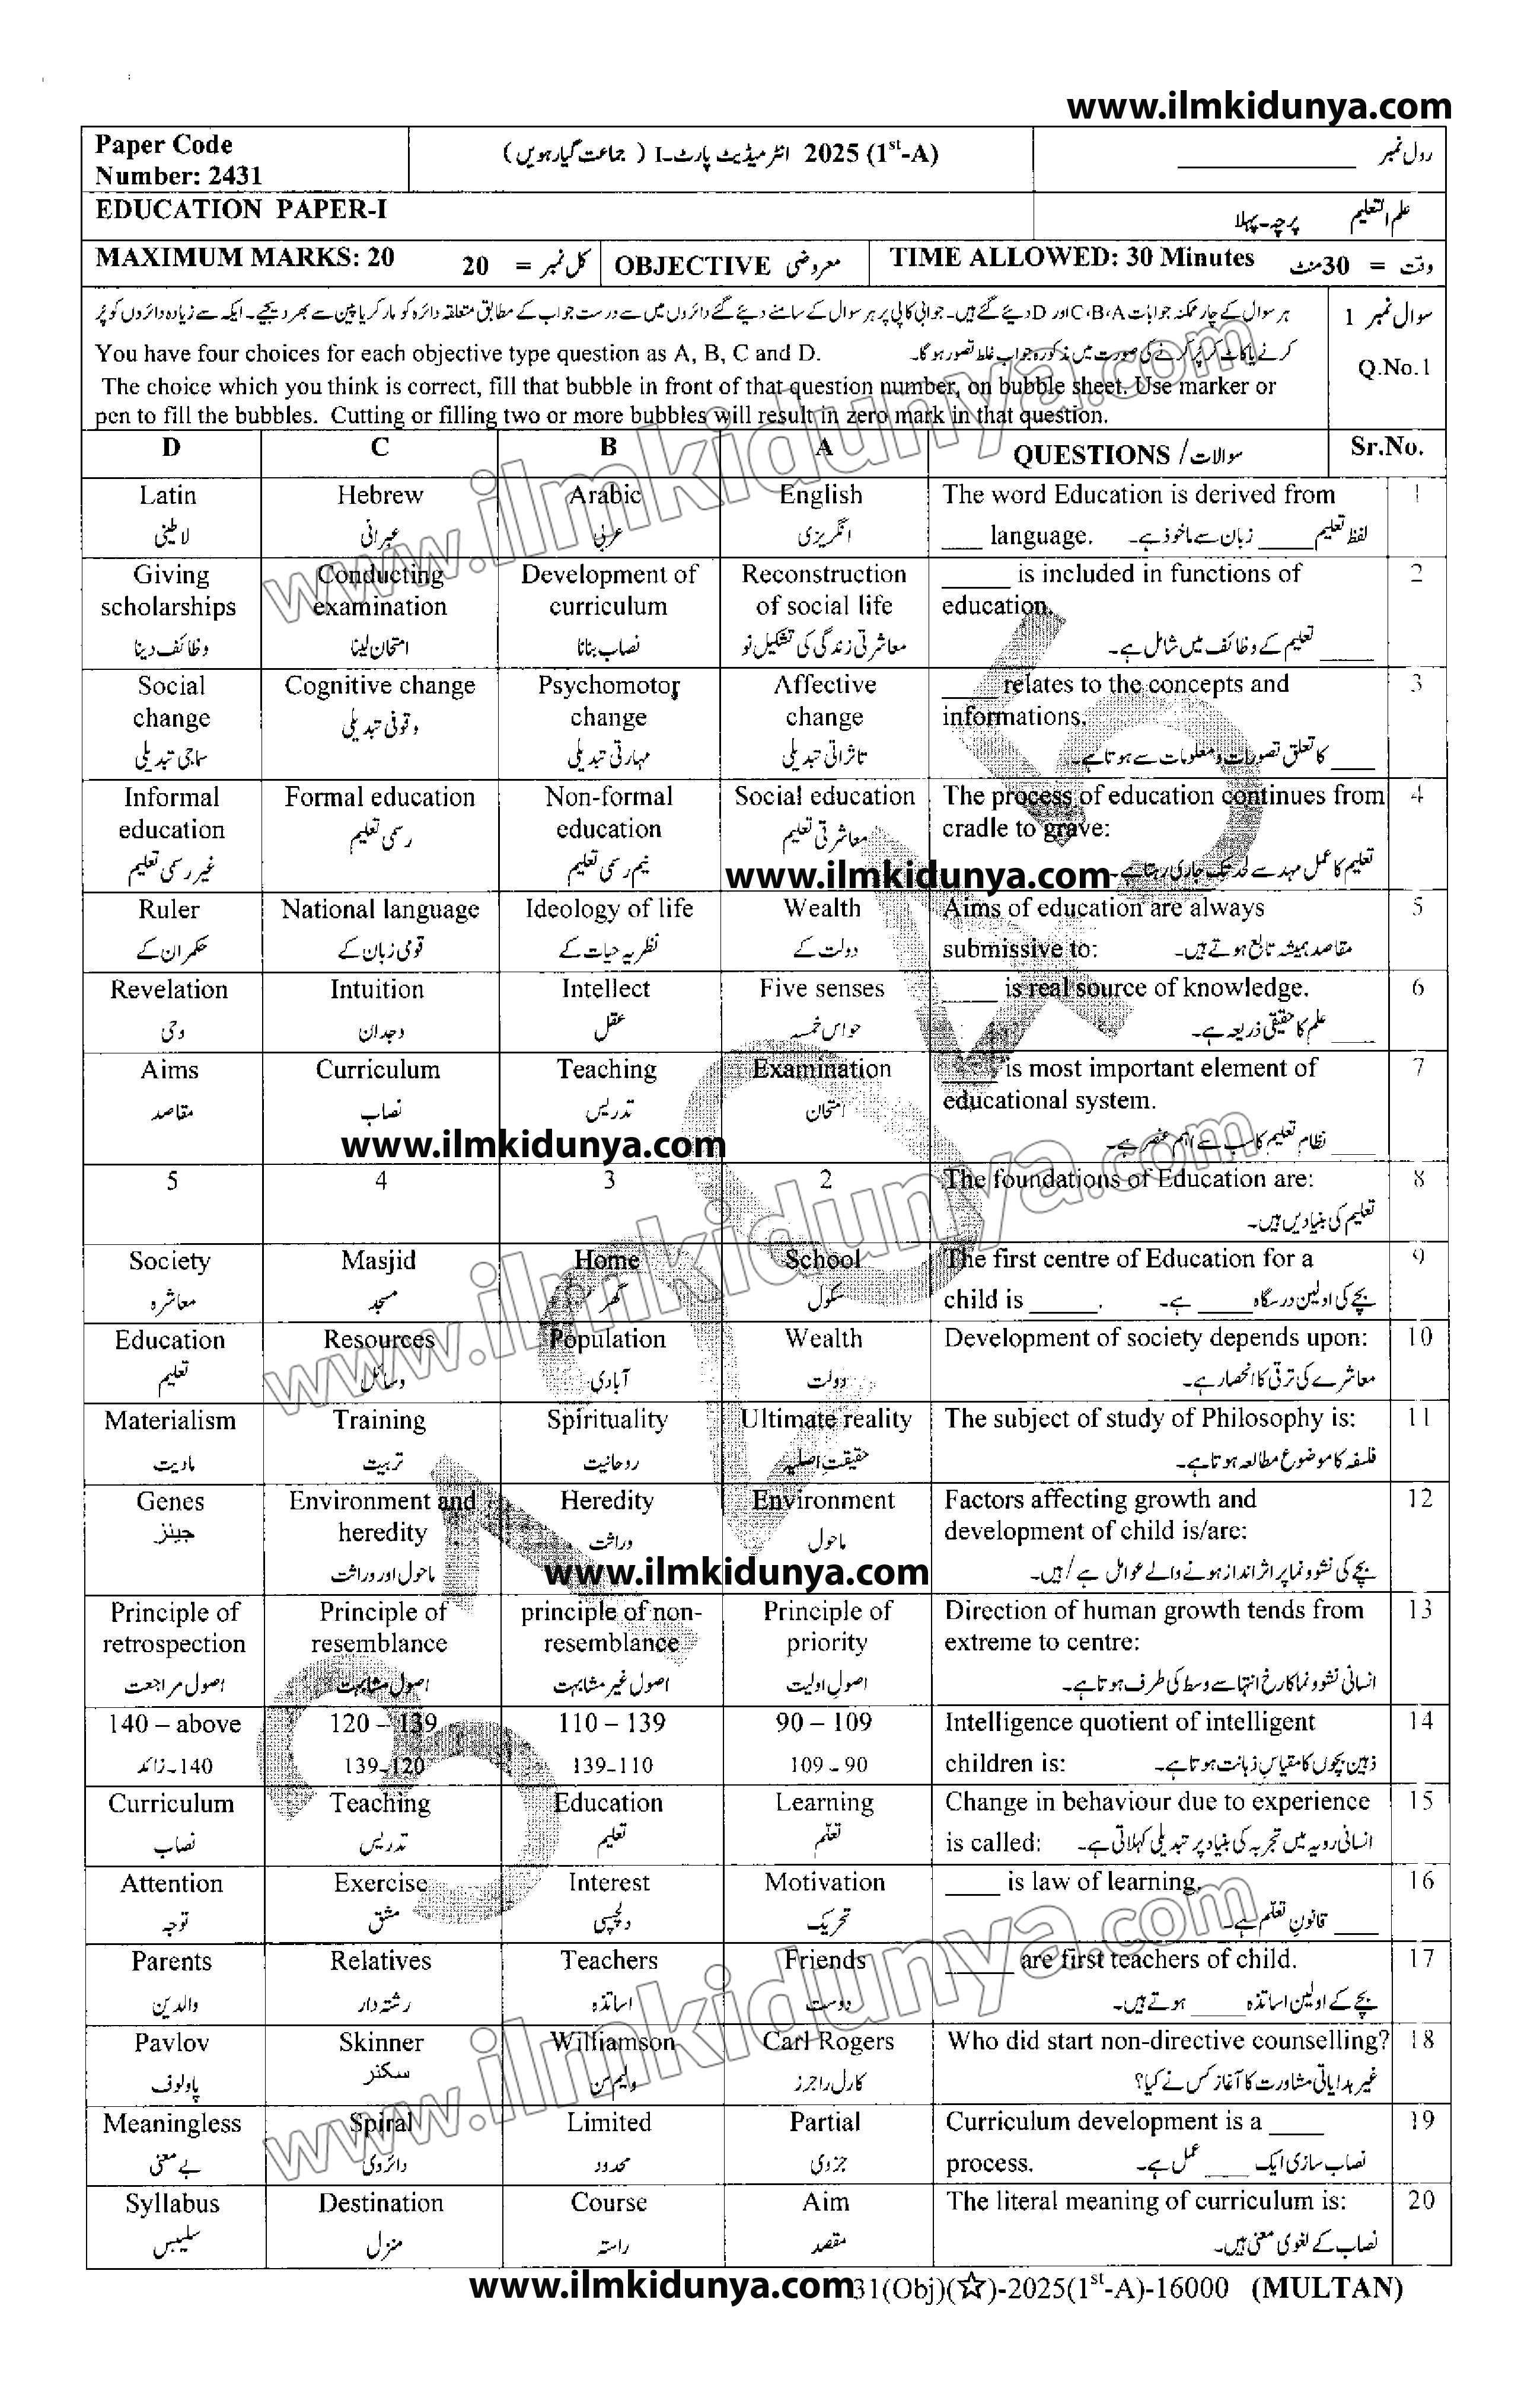 www.ilmkidunya.com
Paper Code
Number: 2431
2025 (1st-A) انٹرمیڈیٹ پارٹ-I ( جماعت گیارہویں )
رول نمبر ____________
EDUCATION PAPER-I
علم التعلیم پرچہ-پہلا
MAXIMUM MARKS: 20
کل نمبر = 20
OBJECTIVE معروضی
TIME ALLOWED: 30 Minutes
وقت = 30منٹ
سوال نمبر 1
Q.No.1
ہر سوال کے چار ممکنہ جوابات C،B،A اور D دیئے گئے ہیں۔ جوابی کاپی پر ہر سوال کے سامنے دیئے گئے دائروں میں سے درست جواب کے مطابق متعلقہ دائرہ کو مارکر یا پین سے بھر دیجیے۔ ایک سے زیادہ دائروں کو پُر
کرنے یا کاٹ کر پُر کرنے کی صورت میں مذکورہ جواب غلط تصور ہو گا۔
You have four choices for each objective type question as A, B, C and D.
The choice which you think is correct, fill that bubble in front of that question number, on bubble sheet. Use marker or
pen to fill the bubbles. Cutting or filling two or more bubbles will result in zero mark in that question.
D C B A QUESTIONS / سوالات Sr.No.
Latin Hebrew Arabic English The word Education is derived from 1
لاطینی عبرانی عربی انگریزی ___ language. لفظ تعلیم ____ زبان سے ماخوذ ہے۔
Giving Conducting Development of Reconstruction _____ is included in functions of 2
scholarships examination curriculum of social life education.
وظائف دینا امتحان لینا نصاب بنانا معاشرتی زندگی کی تشکیل نو ____ تعلیم کے وظائف میں شامل ہے۔
Social Cognitive change Psychomotor Affective ____ relates to the concepts and 3
change وقوفی تبدیلی change change informations.
سماجی تبدیلی مہارتی تبدیلی تاثراتی تبدیلی ____ کا تعلق تصورات و معلومات سے ہوتا ہے۔
Informal Formal education Non-formal Social education The process of education continues from 4
education رسمی تعلیم education معاشرتی تعلیم cradle to grave:
غیر رسمی تعلیم نیم رسمی تعلیم www.ilmkidunya.com تعلیم کا عمل مہد سے لحد تک جاری رہتا ہے۔
Ruler National language Ideology of life Wealth Aims of education are always 5
حکمران کے قومی زبان کے نظریہ حیات کے دولت کے submissive to: مقاصد ہمیشہ تابع ہوتے ہیں۔
Revelation Intuition Intellect Five senses ____ is real source of knowledge. 6
وحی وجدان عقل حواس خمسہ ____ علم کا حقیقی ذریعہ ہے۔
Aims Curriculum Teaching Examination ____ is most important element of 7
مقاصد نصاب تدریس امتحان educational system.
www.ilmkidunya.com ____ نظام تعلیم کا سب سے اہم عنصر ہے۔
5 4 3 2 The foundations of Education are: 8
تعلیم کی بنیادیں ہیں۔
Society Masjid Home School The first centre of Education for a 9
معاشرہ مسجد گھر سکول child is _____. بچے کی اولین درسگاہ ____ ہے۔
Education Resources Population Wealth Development of society depends upon: 10
تعلیم وسائل آبادی دولت معاشرے کی ترقی کا انحصار ہے۔
Materialism Training Spirituality Ultimate reality The subject of study of Philosophy is: 11
مادیت تربیت روحانیت حقیقت اصلیہ فلسفہ کا موضوع مطالعہ ہوتا ہے۔
Genes Environment and Heredity Environment Factors affecting growth and 12
جینز heredity وراثت ماحول development of child is/are:
ماحول اور وراثت www.ilmkidunya.com بچے کی نشوونما پر اثر انداز ہونے والے عوامل ہے/ ہیں۔
Principle of Principle of principle of non- Principle of Direction of human growth tends from 13
retrospection resemblance resemblance priority extreme to centre:
اصول مراجعت اصول مشابہت اصول غیر مشابہت اصول اولیت انسانی نشوونما کا رخ انتہا سے وسط کی طرف ہوتا ہے۔
140 – above 120 – 139 110 – 139 90 – 109 Intelligence quotient of intelligent 14
140-زائد 139-120 139-110 109-90 children is: ذہین بچوں کا مقیاس ذہانت ہوتا ہے۔
Curriculum Teaching Education Learning Change in behaviour due to experience 15
نصاب تدریس تعلیم تعلّم is called: انسانی رویہ میں تجربہ کی بنیاد پر تبدیلی کہلاتی ہے۔
Attention Exercise Interest Motivation ____ is law of learning. 16
توجہ مشق دلچسپی تحریک ____ قانون تعلّم ہے۔
Parents Relatives Teachers Friends _____ are first teachers of child. 17
والدین رشتہ دار اساتذہ دوست بچے کے اولین اساتذہ ____ ہوتے ہیں۔
Pavlov Skinner Williamson Carl Rogers Who did start non-directive counselling? 18
پاولوف سکنر ولیم سن کارل راجرز غیر ہدایاتی مشاورت کا آغاز کس نے کیا؟
Meaningless Spiral Limited Partial Curriculum development is a ____ 19
بے معنی دائروی محدود جزوی process. نصاب سازی ایک ___ عمل ہے۔
Syllabus Destination Course Aim The literal meaning of curriculum is: 20
سلیبس منزل راستہ مقصد نصاب کے لغوی معنی ہیں۔
www.ilmkidunya.com 31(Obj)(☆)-2025(1st-A)-16000 (MULTAN)
www.ilmkidunya.com
www.ilmkidunya.com
www.ilmkidunya.com